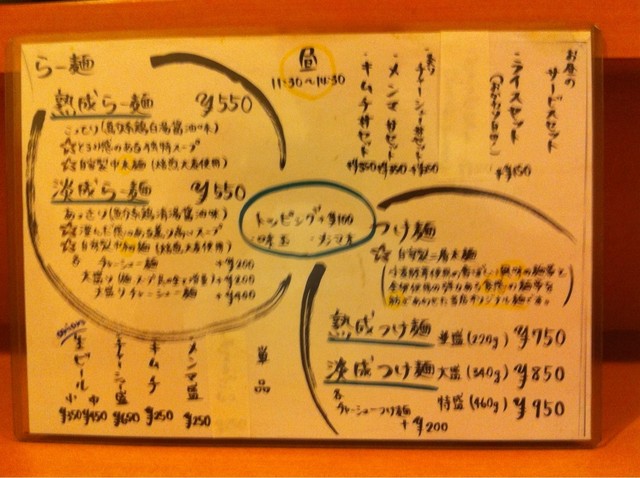 らー麺
熟成らー麺 ¥550
こってり(魚介系鶏白湯醤油味)
☆とろみ感のある独特スープ
☆自家製中太麺(焙煎大麦使用)
淡成らー麺 ¥550
あっさり(魚介系鶏清湯醤油味)
☆自家製中細麺(焙煎大麦使用)
各 チャーシュー麺 +¥200
大盛り(麺・スープ共の量が増量) +¥200
大盛りチャーシュー麺 +¥400
昼
11:30〜14:30
お昼の
サービスセット
・ライスセット
(おかわり自由) +¥150
・チャーシュー丼セット +¥350
・メンマ丼セット +¥350
・キムチ丼セット +¥350
トッピング +¥100
・味玉 ・メンマ
つけ麺
☆自家製
熟成つけ麺 並盛(220g) ¥750
淡成つけ麺 大盛(340g) ¥850
特盛(460g) ¥950
各
チャーシューつけ麺
+¥200
単品
メンマ盛 ¥250
キムチ ¥250
チャーシュー盛 ¥650
生ビール 中 ¥450
小 ¥350